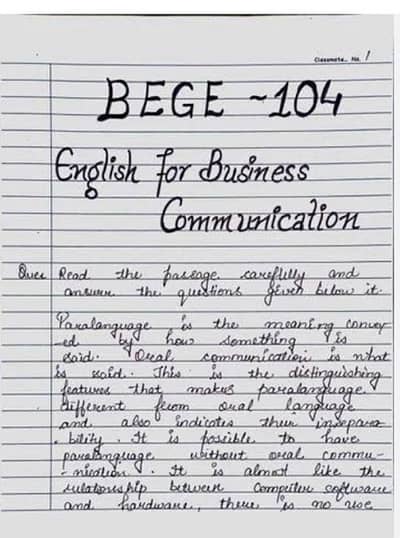 Classmate.. No. 1
BEGE -104
English for Business
Communication
Ques Read the passage carefully and
answer the questions given below it.
Paralanguage is the meaning convey
-ed by how something is
said. Oral communication is what
is said. This is the distinguishing
features that makes paralanguage
different from oral language
and also indicates their insepara
-bility. It is possible to have
paralanguage without oral commu-
-nication. It is almost like the
relationship between Computer software
and hardware, there is no use